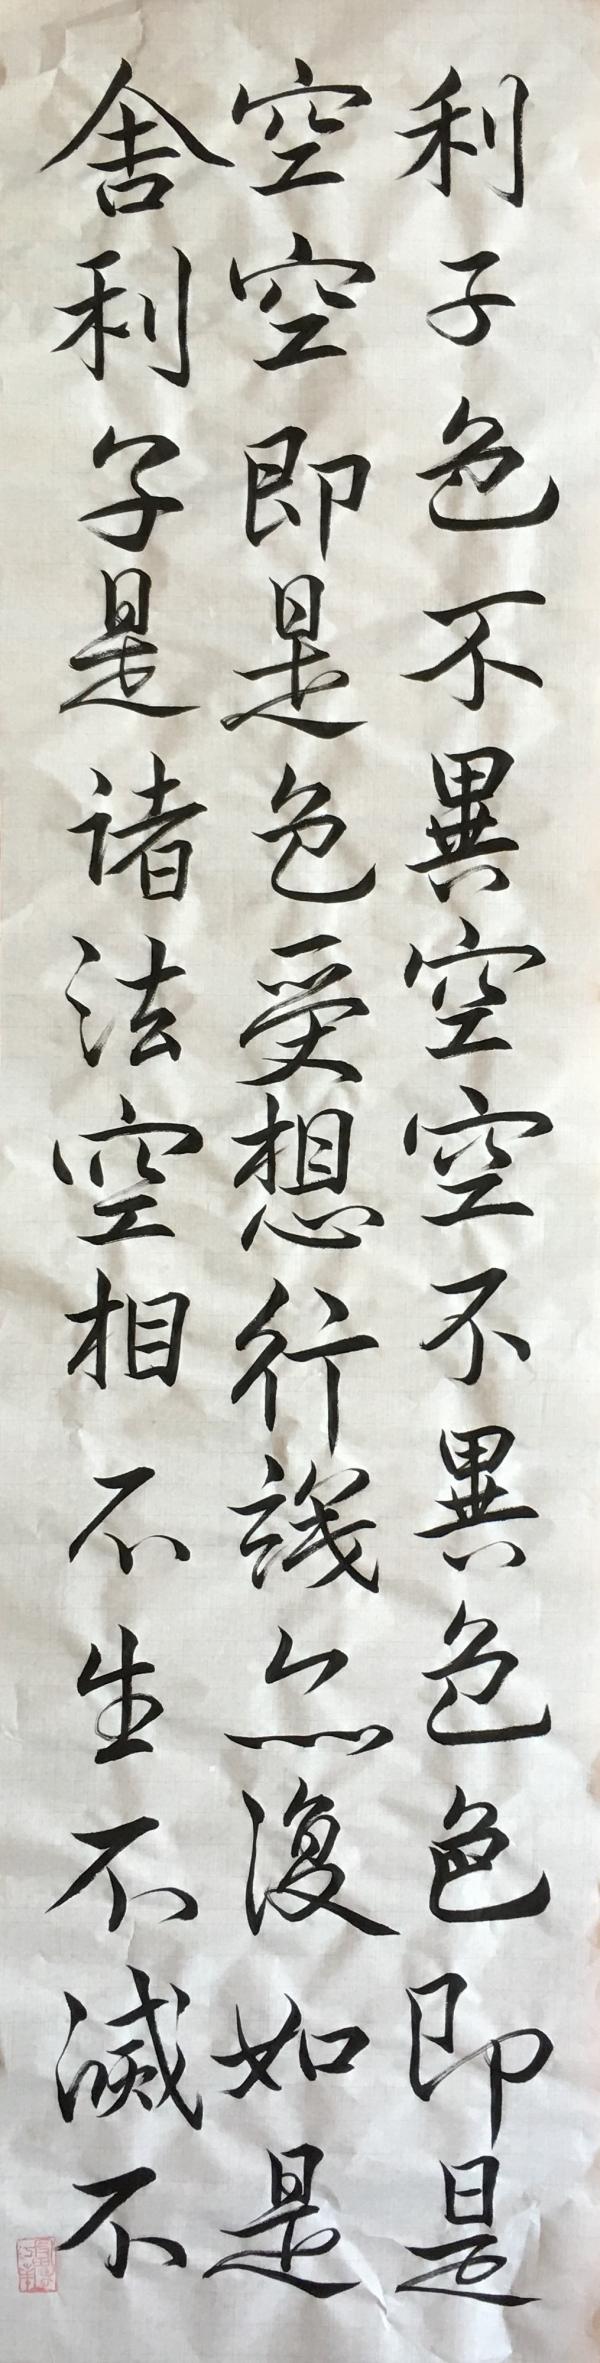 利子色不異空空不異色色即是
空空即是色受想行識亦復如是
舎利子是诸法空相不生不滅不